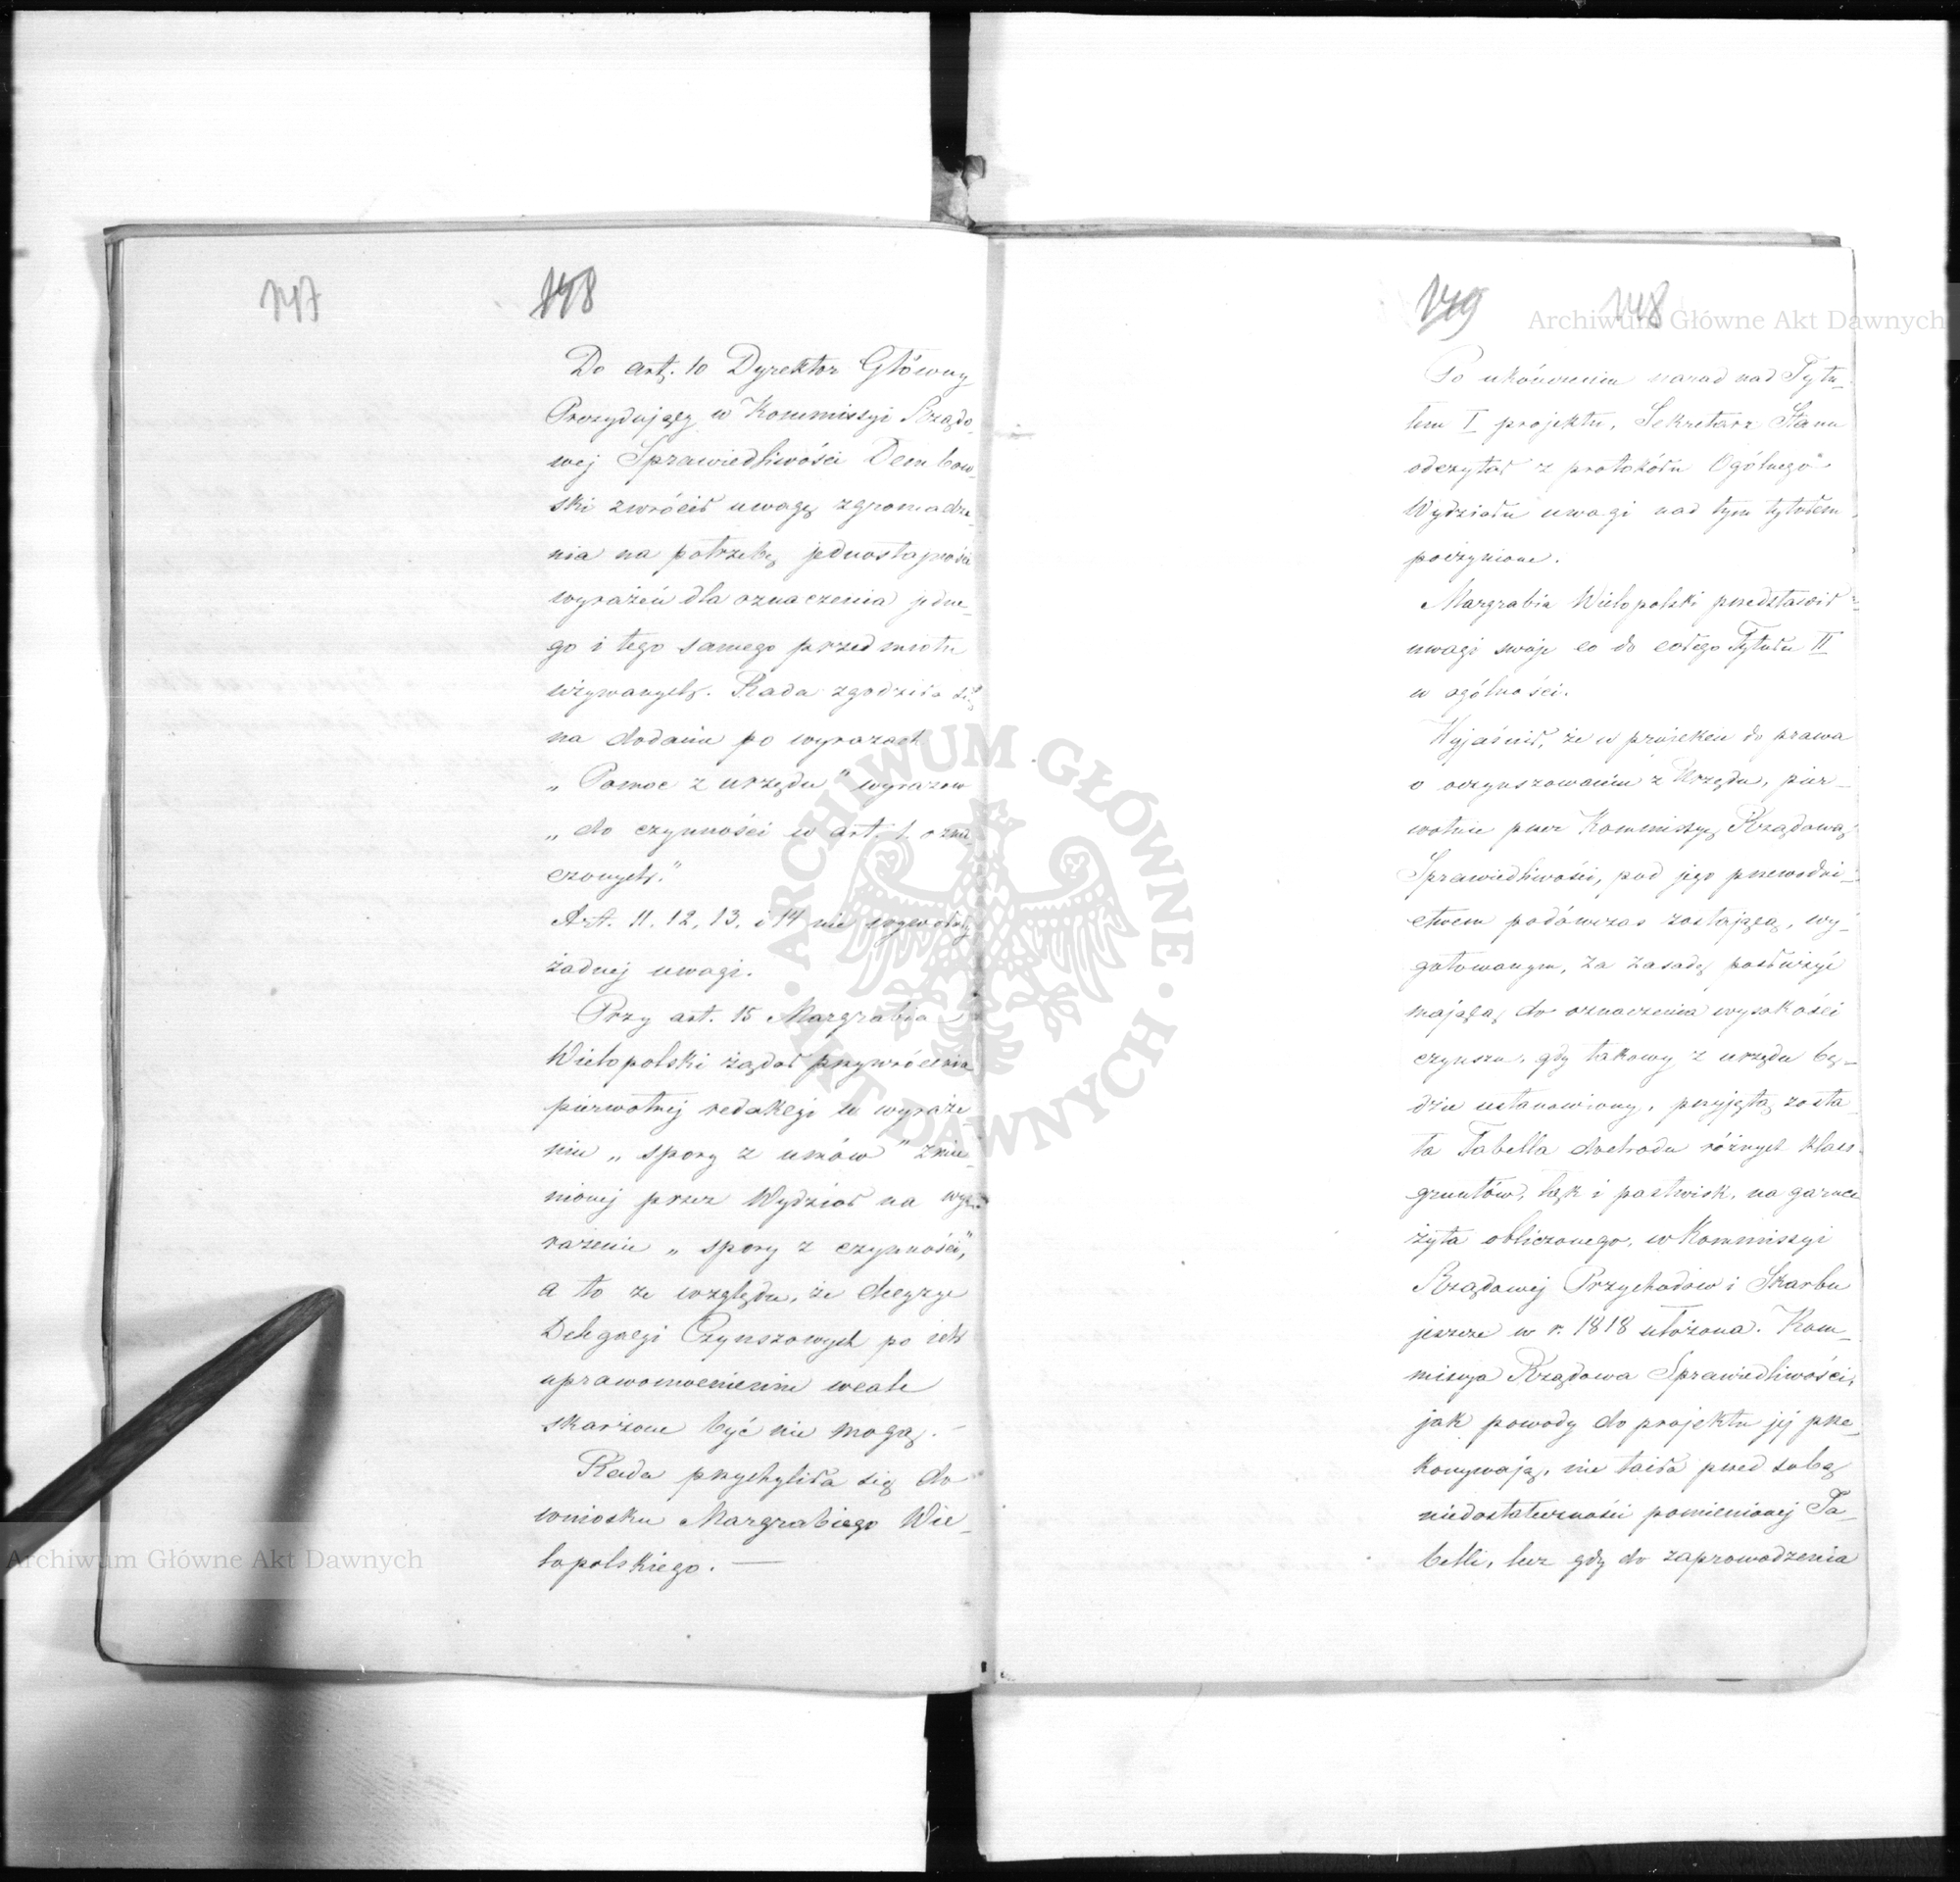 147
148
Do art. 10 Dyrektor Główny
Prezydujący w Kommissyi Rządo-
wej Sprawiedliwości Dembow-
ski zwrócił uwagę zgromadze-
nia na potrzebę jednostajności
wyrażeń dla oznaczenia jedne-
go i tego samego przedmiotu
używanych. Rada zgodziła się
na dodanie po wyrazach
„Pomoc z urzędu" wyrazów
„do czynności w art. 1 ozna-
czonych."
Art. 11. 12, 13. i 14 nie wywołały
żadnej uwagi.
Przy art. 15 Margrabia
Wielopolski żądał przywrócenia
pierwotnej redakcyi w wyraże-
niu „spory z umów" zmie-
nionej przez Wydział na wy-
rażenie „spory z czynności",
a to ze względu, że decyzye
Delegacyi Czynszowych po ich
uprawomocnieniu wcale
skarżone być nie mogą. -
Rada przychyliła się do
wniosku Margrabiego Wie-
lopolskiego. —
149
148
Po ukończeniu narad nad Tytu-
łem I projektu, Sekretarz Stanu
odczytał z protokółu Ogólnego
Wydziału uwagi nad tym tytułem
poczynione.
Margrabia Wielopolski przedstawił
uwagi swoje co do całego Tytułu II
w ogólności.
Wyjaśnił, że w projekcie do prawa
o oczynszowaniu z Urzędu, pier-
wotnie przez Kommissyę Rządową
Sprawiedliwości, pod jego przewodni-
ctwem podówczas zostającą, wy-
gotowanym, za zasadę posłużyć
mającą do oznaczenia wysokości
czynszu, gdy takowy z urzędu bę-
dzie ustanowiony, przyjętą zosta-
ła Tabella dochodu różnych klass
gruntów, łąk i pastwisk, na garnce
żyta obliczonego, w Kommissyi
Rządowej Przychodów i Skarbu
jeszcze w r. 1818 ułożona. Kom-
missya Rządowa Sprawiedliwości,
jak powody do projektu jej prze-
konywają, nie taiła przed sobą
niedostateczności pomienionej Ta-
belli, lecz gdy do zaprowadzenia
Archiwum Główne Akt Dawnych
Archiwum Główne Akt Dawnych
ARCHIWUM GŁÓWNE
AKT DAWNYCH